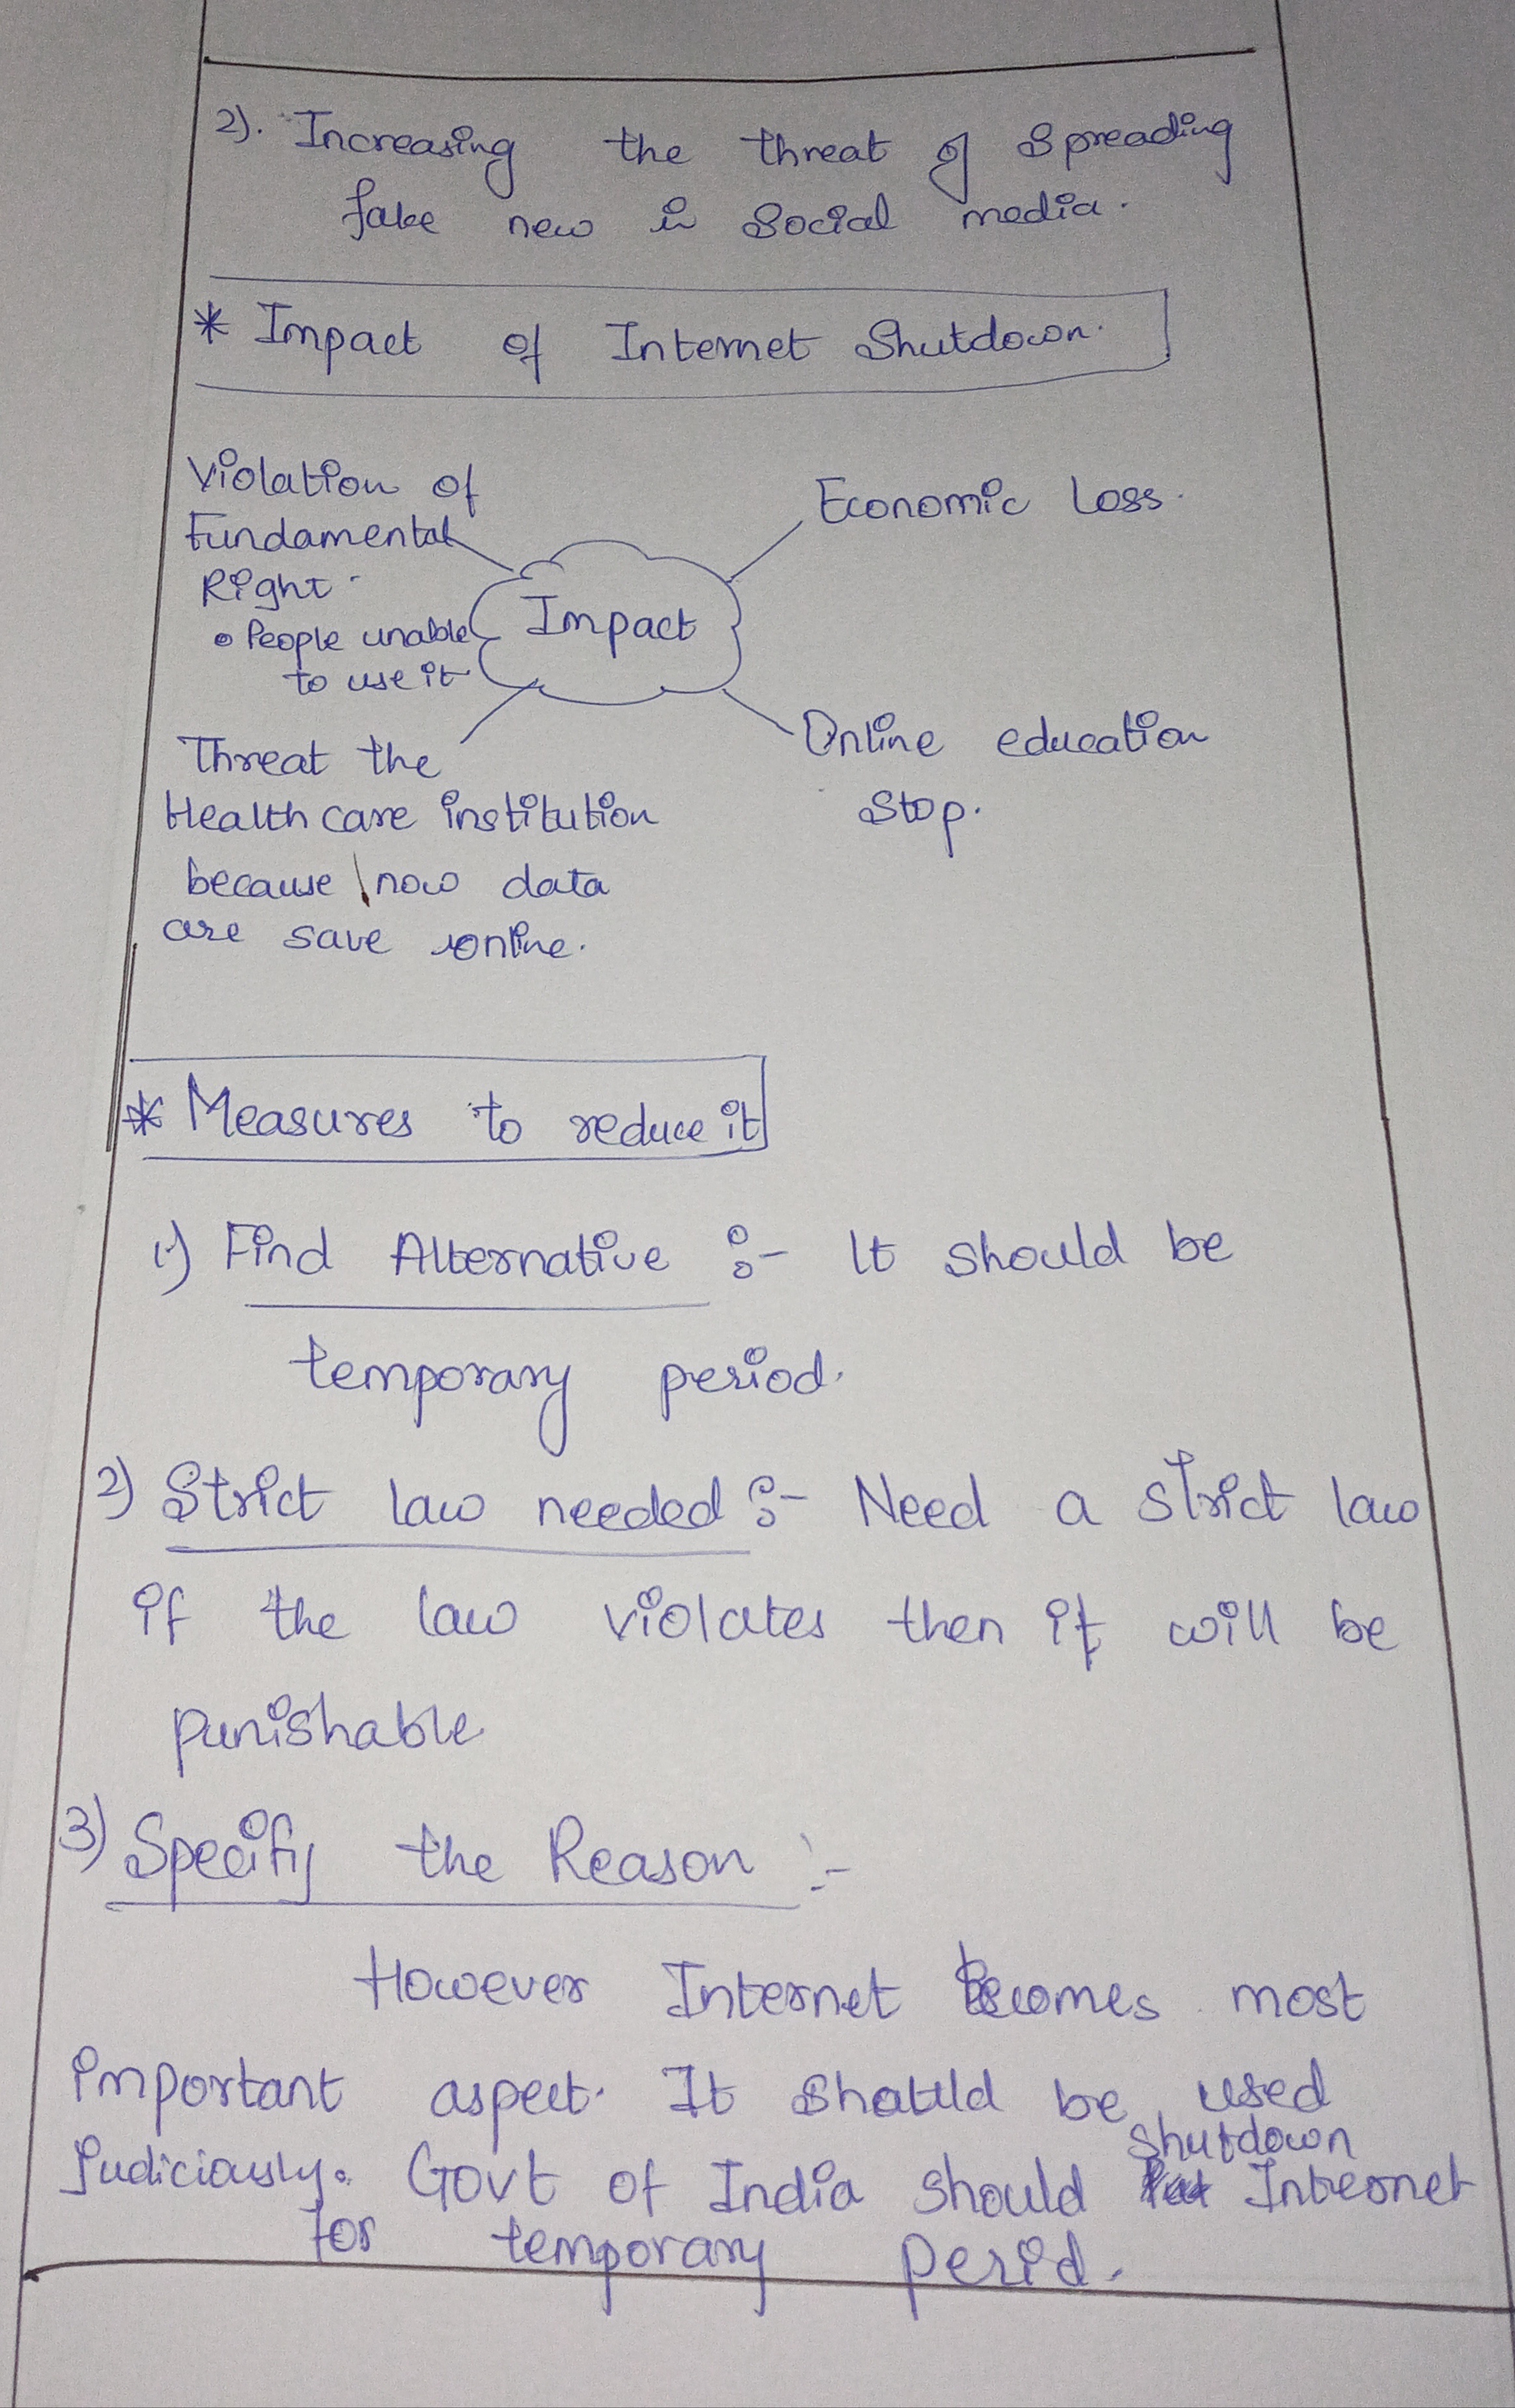 2). Increasing the threat of Spreading
fake new in Social media.
* Impact of Internet Shutdown.
Violation of
Fundamental
Right.
• People unable
to use it
Economic Loss.
Impact
Threat the
Health care institution
because now data
are save online.
Online education
Stop.
* Measures to reduce it
1) Find Alternative :- It should be
temporary period.
2) Strict law needed :- Need a strict law
if the law violates then it will be
punishable
3) Specify the Reason :-
However Internet Becomes most
important aspect. It should be used
judiciously. Govt of India should shutdown Internet
for temporary perid.